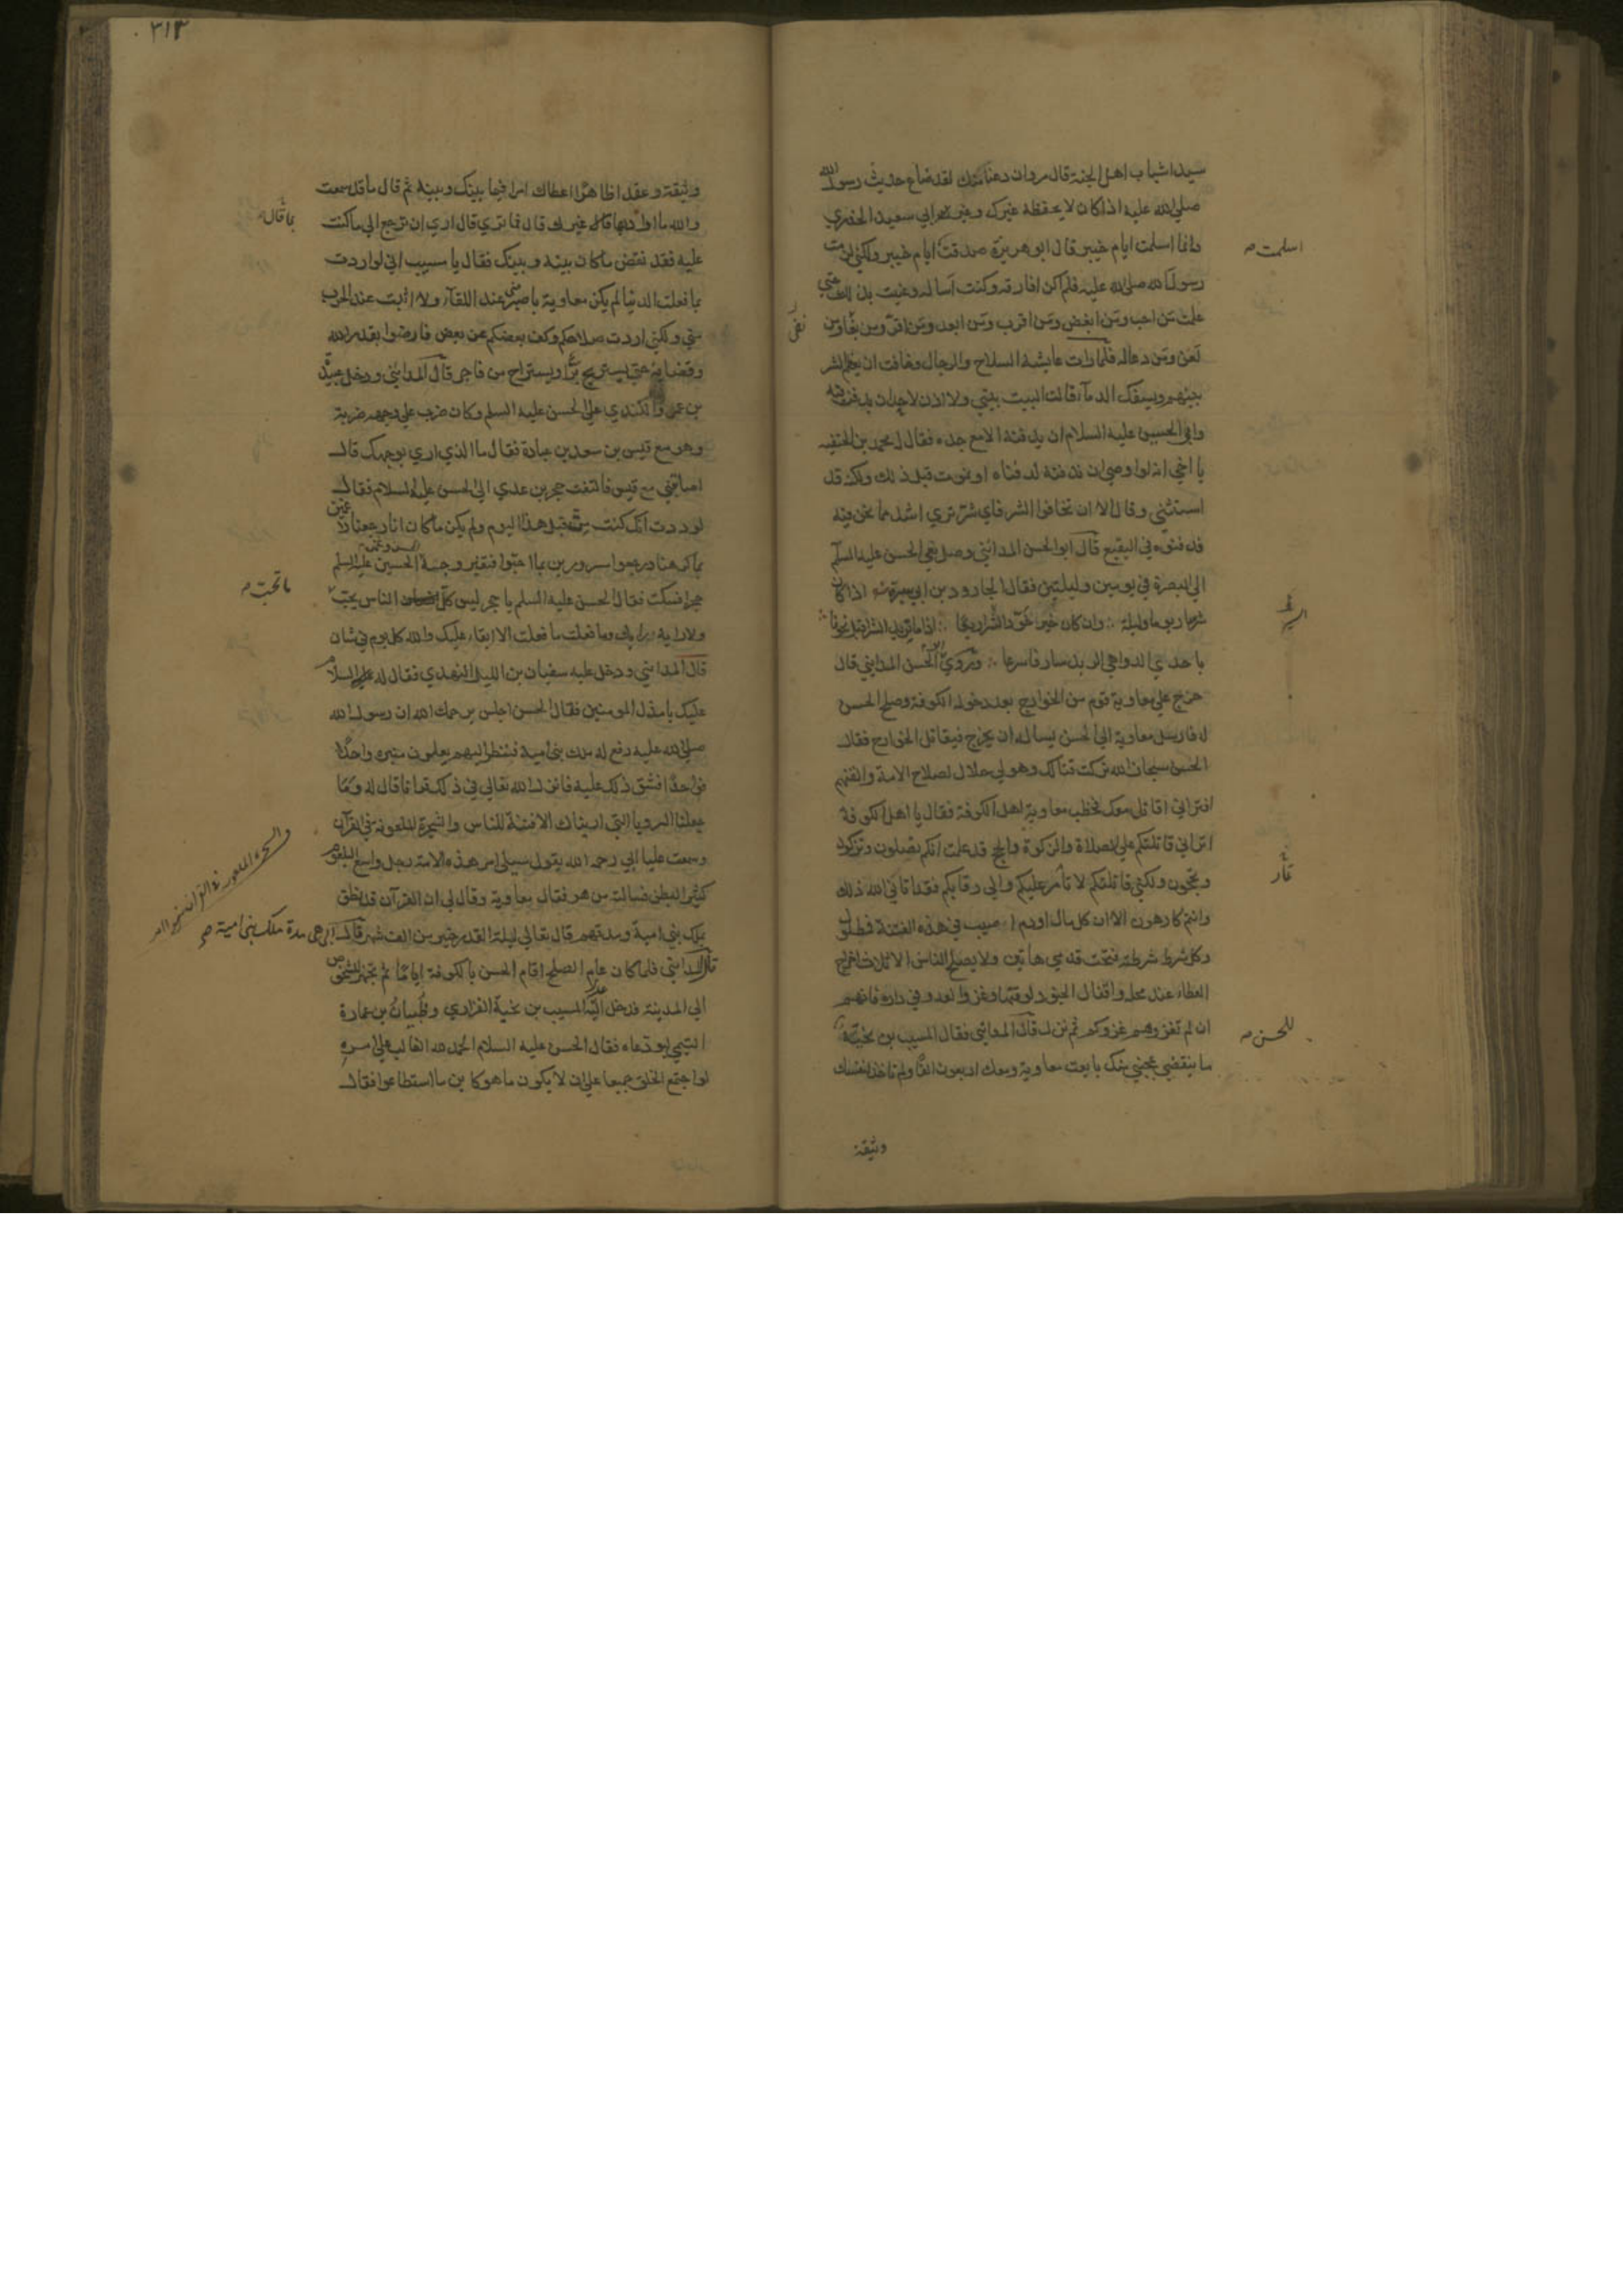 سيدا شباب اهل الجنة قال مروان دعنا منك لقد ضاع حديث رسول الله
صلى الله عليه اذ كان لا يحفظه غيرك وغير ابي سعيد الخدري
وانما اسلمت ايام خيبر قال ابو هريرة صدقت ايام خيبر ولكني لزمت
رسول الله صلى الله عليه فلم اكن افارقه وكنت اساله وعنيت بذلك حتى
علمت من احب ومن ابغض ومن اقرب ومن ابعد ومن اقر ومن نفا ومن
لعن ومن دعا له فلما رات عايشة السلاح والرجال وخافت ان يعظم الشر
بينهم ويسفك الدماء قالت البيت بيتي ولا اذن لاحد ان يدفن فيه
وابى الحسين عليه السلام ان يدفنه الا مع جده فقال له محمد بن الحنفيه
يا اخي انه لو اوصى ان ندفنه لدفناه او نموت قبل ذلك ولكنه قد
استثنى وقال الا ان تخافوا الشر فاي شر ترى اشد مما نحن فيه
فدفنوه في البقيع قال ابو الحسن المدائني وصل نعي الحسن عليه السلم
الى البصرة في يومين وليلتين فقال الجارود بن ابي سبرة اذا كان
شر سار يوما وليلة وان كان خير اخر السير اربعا اذا ما بريد الشر اقبل نحونا
باحدى الدواهي الربد سار فاسرعا وروى ابو الحسن المدايني قال
خرج على معاوية قوم من الخوارج بعد دخوله الكوفة وصلح الحسن
له فارسل معاوية الى الحسن يساله ان يخرج فيقاتل الخوارج فقال
الحسن سبحان الله تركت قتالك وهو لي حلال لصلاح الامة والفتهم
افتراني اقاتل معك فخطب معاوية اهل الكوفة فقال يا اهل الكوفة
اتراني قاتلتكم على الصلاة والزكوة والحج قد علمت انكم تصلون وتزكون
وتحجون ولكني قاتلتكم لا تامر عليكم والي رقابكم فقد اتاني الله ذلك
وانتم كارهون الا ان كل مال او دم اصيب في هذه الفتنة فمطلول
وكل شرط شرطته فتحت قدمي هاتين ولا يصلح الناس الا ثلاث اخراج
العطاء عند محله واقفال الجنود لوقتها وغزو العدو في داره فانهم
ان لم تغزوهم غزوكم ثم نزل قال المدائني فقال المسيب بن نجبة
ما ينقضي عجبي منك بايعت معاوية ومعك اربعون الفا ولم تاخذ لنفسك
وثيقة
اسلمت
نفى
السير
للحسن
٣١٣
وثيقة وعقدا ظاهرا اعطاك امرا فيما بينك وبينه ثم قال ما قد سمعت
والله ما اراد بها قال غيرك قال فما ترى قال ارى ان ترجع الى ما كنت
عليه فقد نقض ما كان بينه وبينك فقال يا مسيب اني لو اردت
بما فعلت الدنيا لم يكن معاوية باصبر عند اللقاء ولا اثبت عند الحرب
مني ولكني اردت صلاحكم وكف بعضكم عن بعض فارضوا بقدر الله
وقضايه حتى يستريح بر او يستراح من فاجر قال المدائني ودخل عبيدة
بن عمرو الكندي على الحسن عليه السلم وكان ضرب على وجهه ضربة
وهو مع قيس بن سعد بن عبادة فقال ما الذي ارى بوجهك قال
اصابني مع قيس فالتفت حجر بن عدي الى الحسن عليه السلام فقال
لوددت انك كنت مت قبل هذا اليوم ولم يكن ما كان انا رجعنا راغمين
بما كرهنا ورجعوا مسرورين بما احبوا فتغير وجه الحسن وغمز الحسين عليه السلم
حجرا فسكت فقال الحسن عليه السلم يا حجر ليس كل الناس يحب
ولا رايه رايك وما فعلت ما فعلت الا ابقاء عليك والله كل يوم في شان
قال المدائني ودخل عليه سفيان بن الليل النهدي فقال له السلام
عليك يا مذل المومنين فقال الحسن اجلس يرحمك الله ان رسول الله
صلى الله عليه رفع له ملك بني امية فنظر اليهم يعلون منبره واحدا
فواحدا فشق ذلك عليه فانزل الله تعالى في ذلك قرانا قال له وما
جعلنا الرويا التي اريناك الا فتنة للناس والشجرة الملعونة في القرآن
وسمعت عليا ابي رحمه الله يقول سيلي امر هذه الامة رجل واسع البلعوم
كبير البطن فسالته من هو فقال معاوية وقال لي ان القرآن قد نطق
بملك بني امية ومدتهم قال تعالى ليلة القدر خير من الف شهر قال ابي هي مدة ملك بني امية صح
قال المدائني فلما كان عام الصلح اقام الحسن بالكوفة اياما ثم تجهز للشخوص
الى المدينة فدخل اليه المسيب بن نجبة الفزاري وظبيان بن عمارة
التيمي ليودعاه فقال الحسن عليه السلام الحمد لله الغالب على امره
لو اجتمع الخلق جميعا على ان لا يكون ما هو كائن ما استطاعوا فقال
ما قال
ما تحب